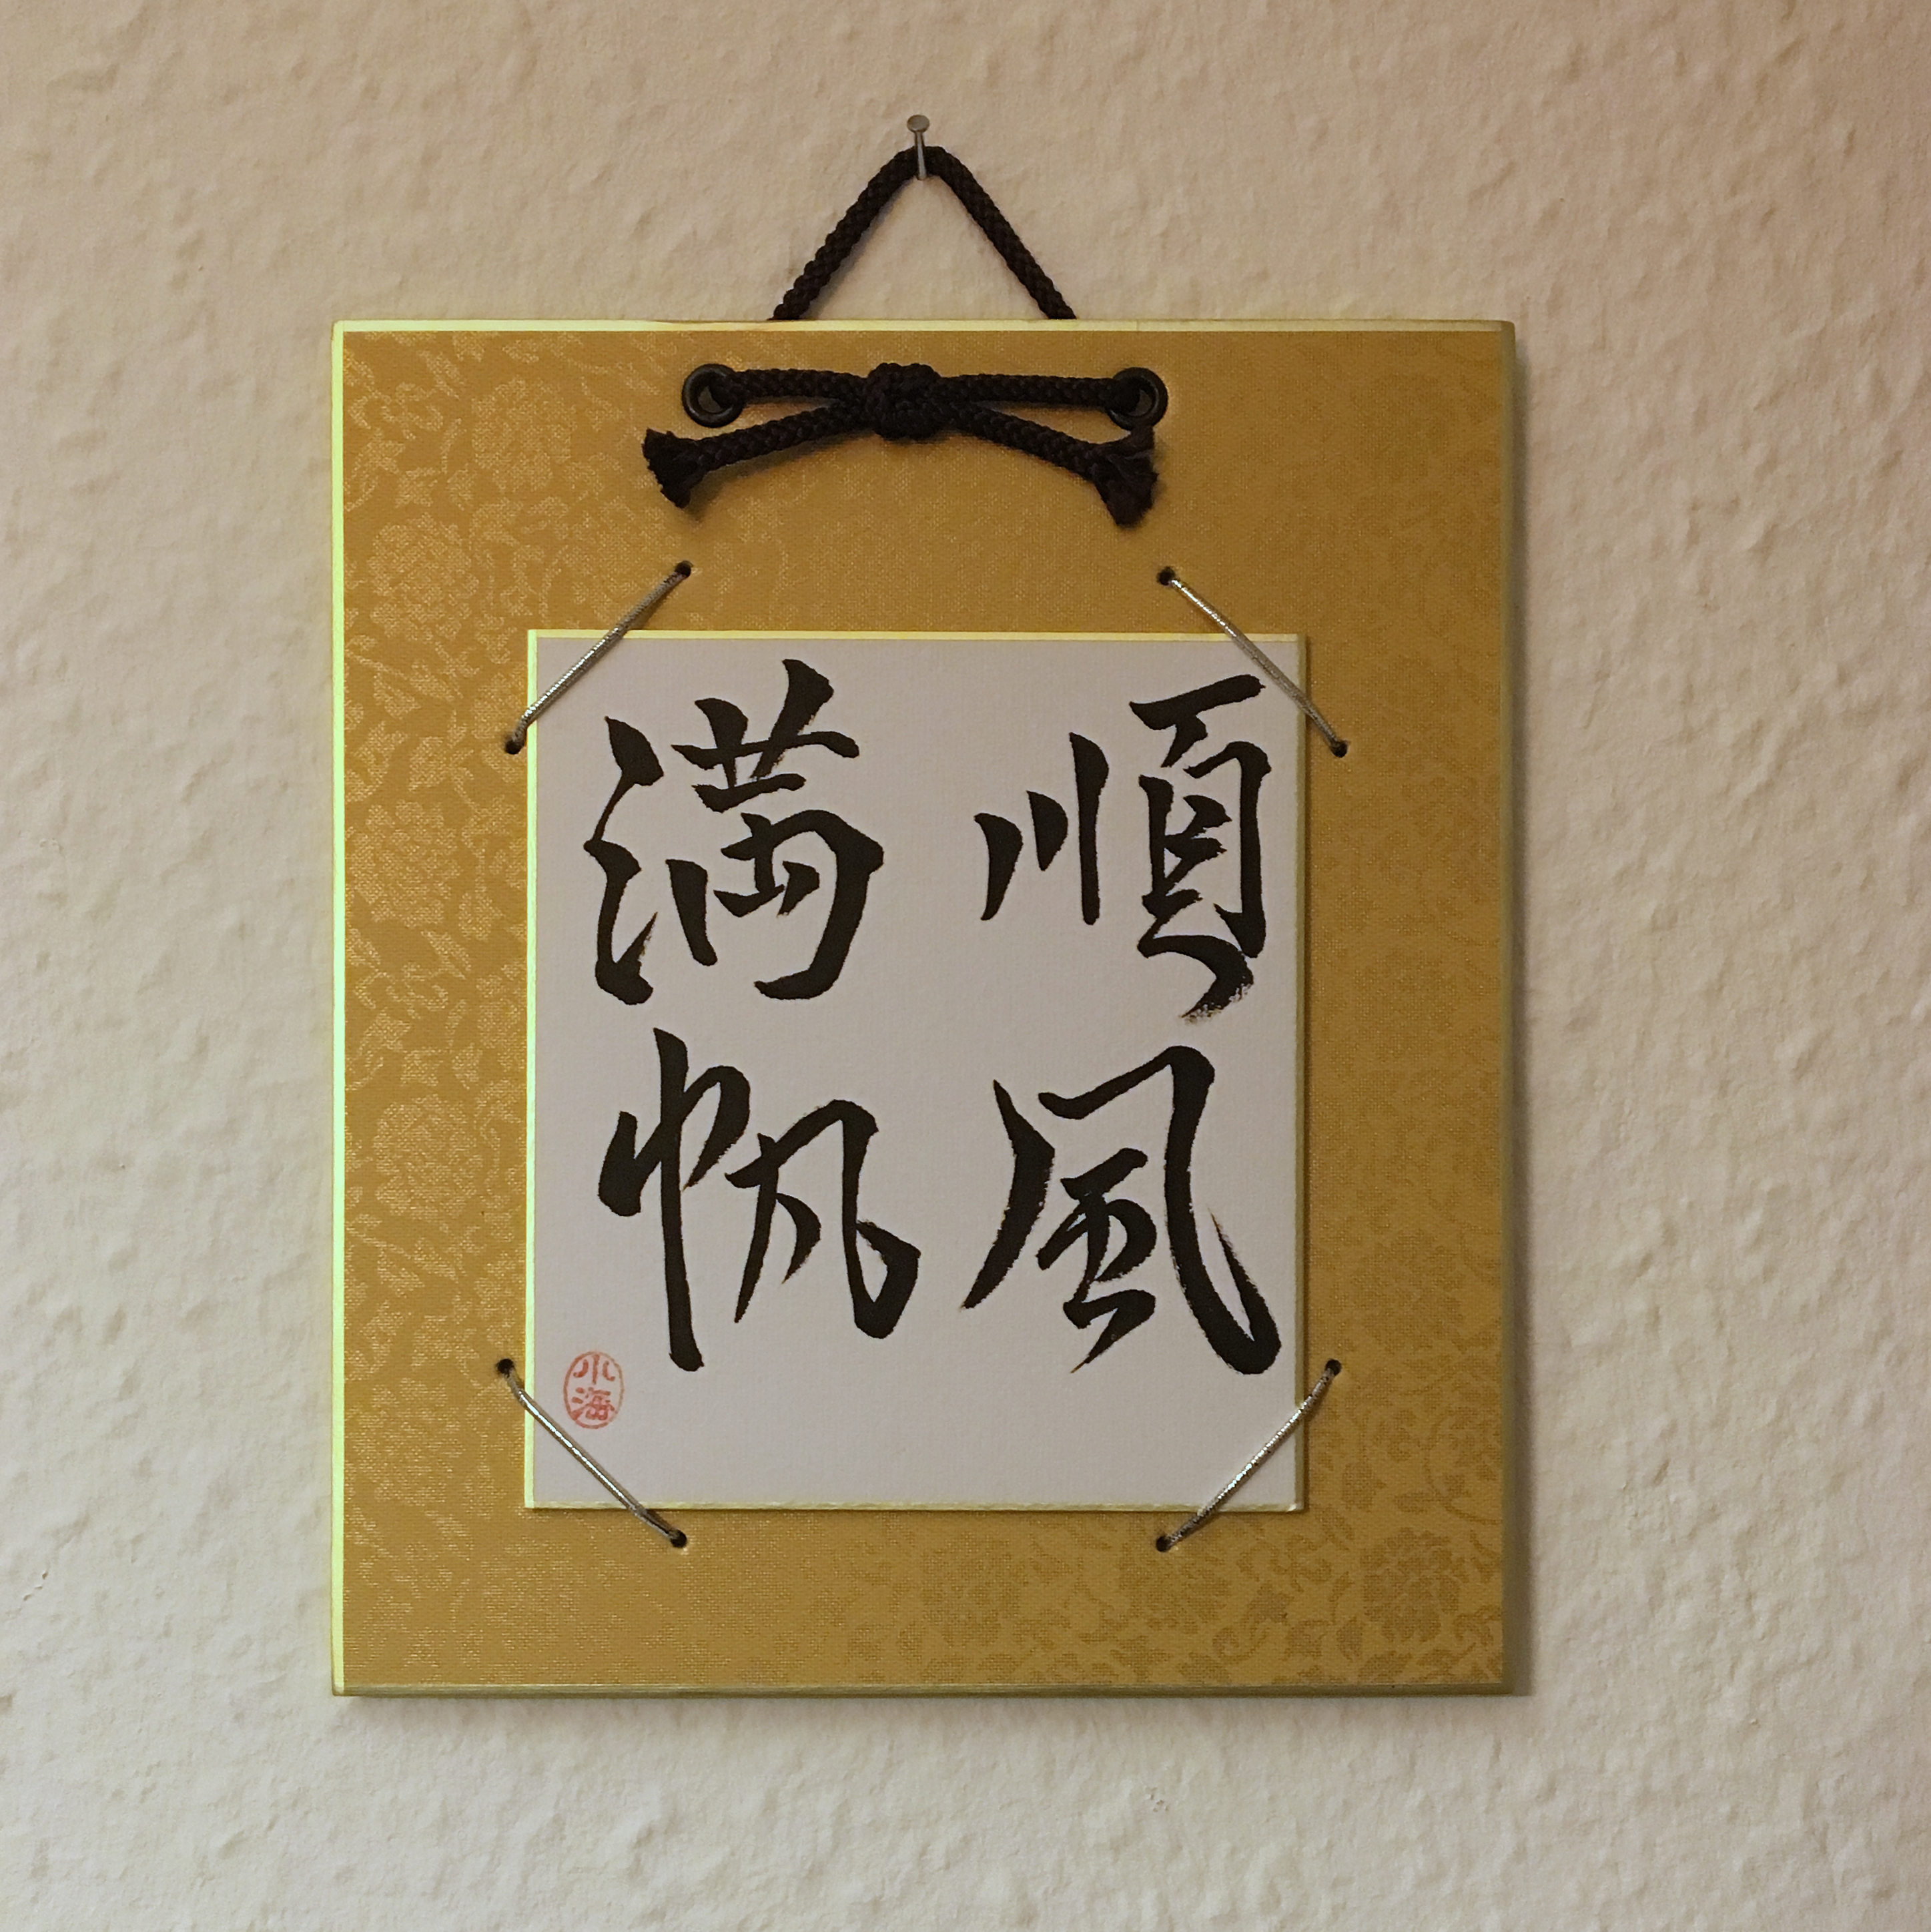 順風
満帆
小海